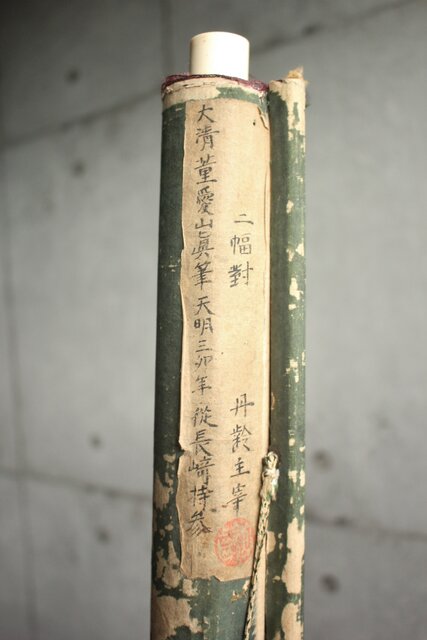 二幅對 丹齢主宰
大清董愛山眞筆天明三卯年從長﨑持参